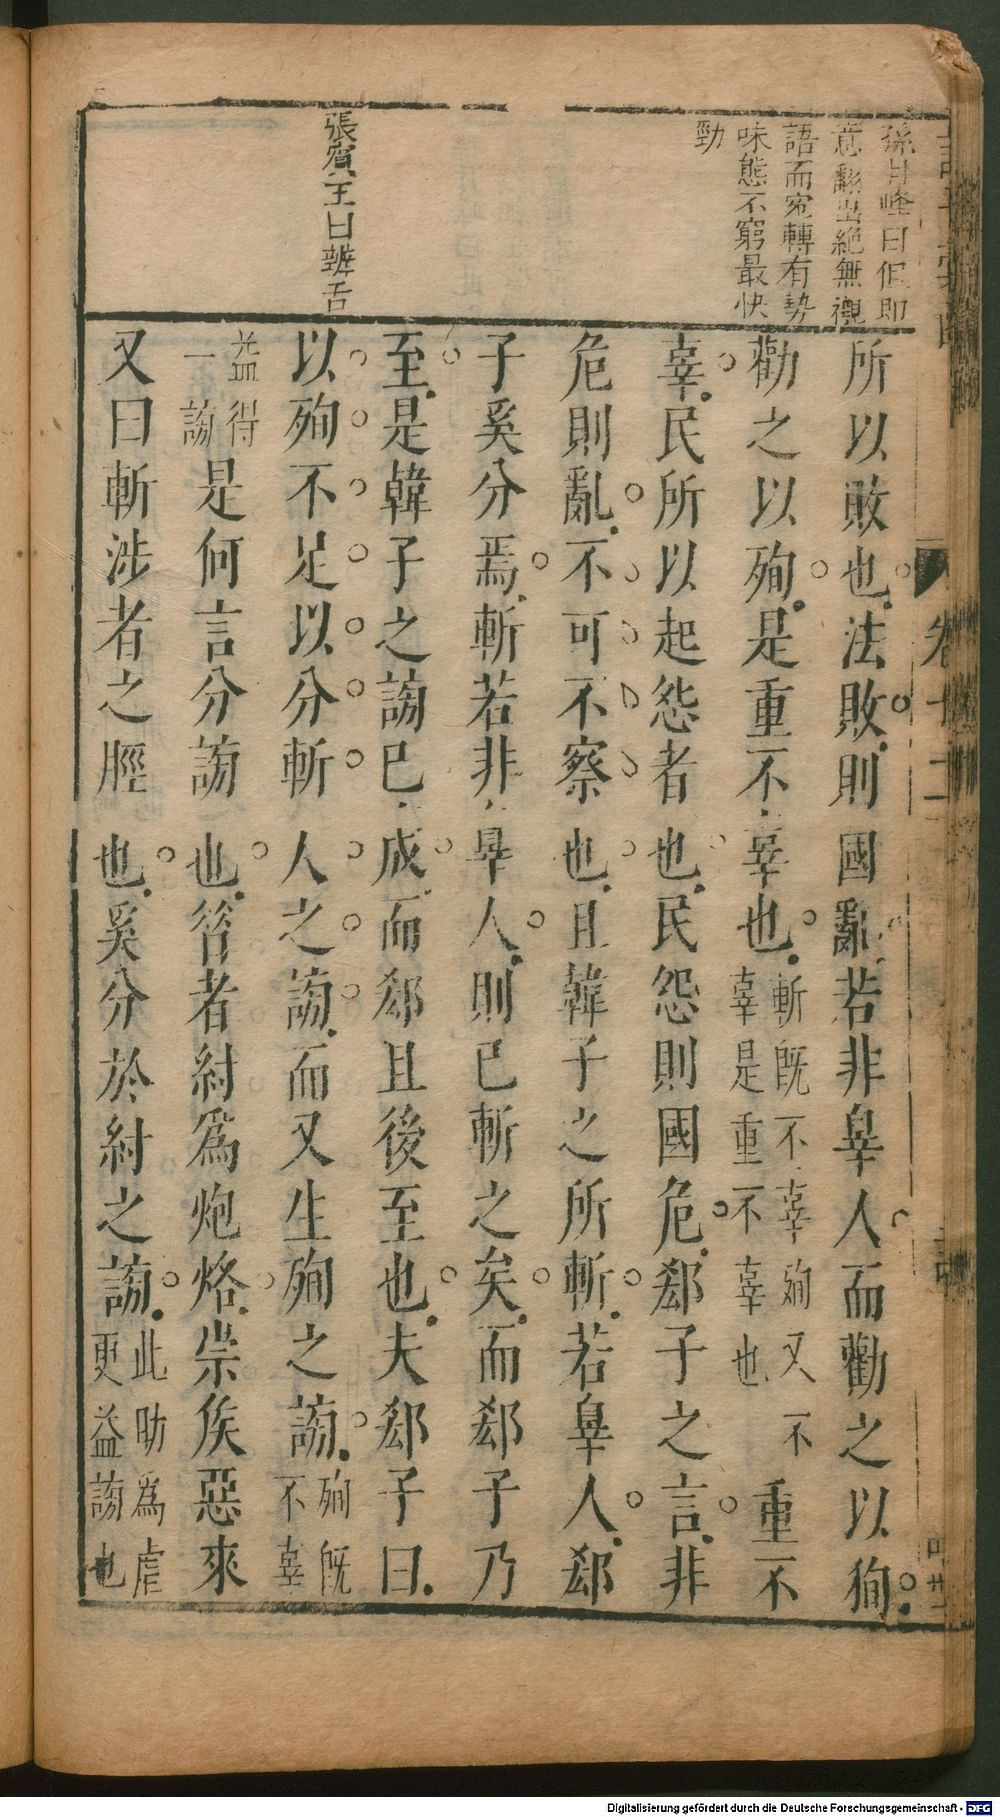 孫月峰曰但即
意翻出絶無襯
語而宛轉有勢
味態不窮最快
勁
張賓王曰辨舌
所以敗也法敗則國亂若非辠人而勸之以狥
勸之以殉是重不辜也斬既不辜殉又不辜是重不辜也重不
辜民所以起怨者也民怨則國危郄子之言非
危則亂不可不察也且韓子之所斬若辠人郄
子奚分焉斬若非辠人則已斬之矣而郄子乃
至是韓子之謗已成而郄且後至也夫郄子曰
以殉不足以分斬人之謗而又生殉之謗殉既不辜
益得一謗是何言分謗也昝者紂爲炮烙崇侯惡來
又曰斬涉者之脛也奚分於紂之謗此助爲虐更益謗也
卷十二
Digitalisierung gefördert durch die Deutsche Forschungsgemeinschaft - DFG